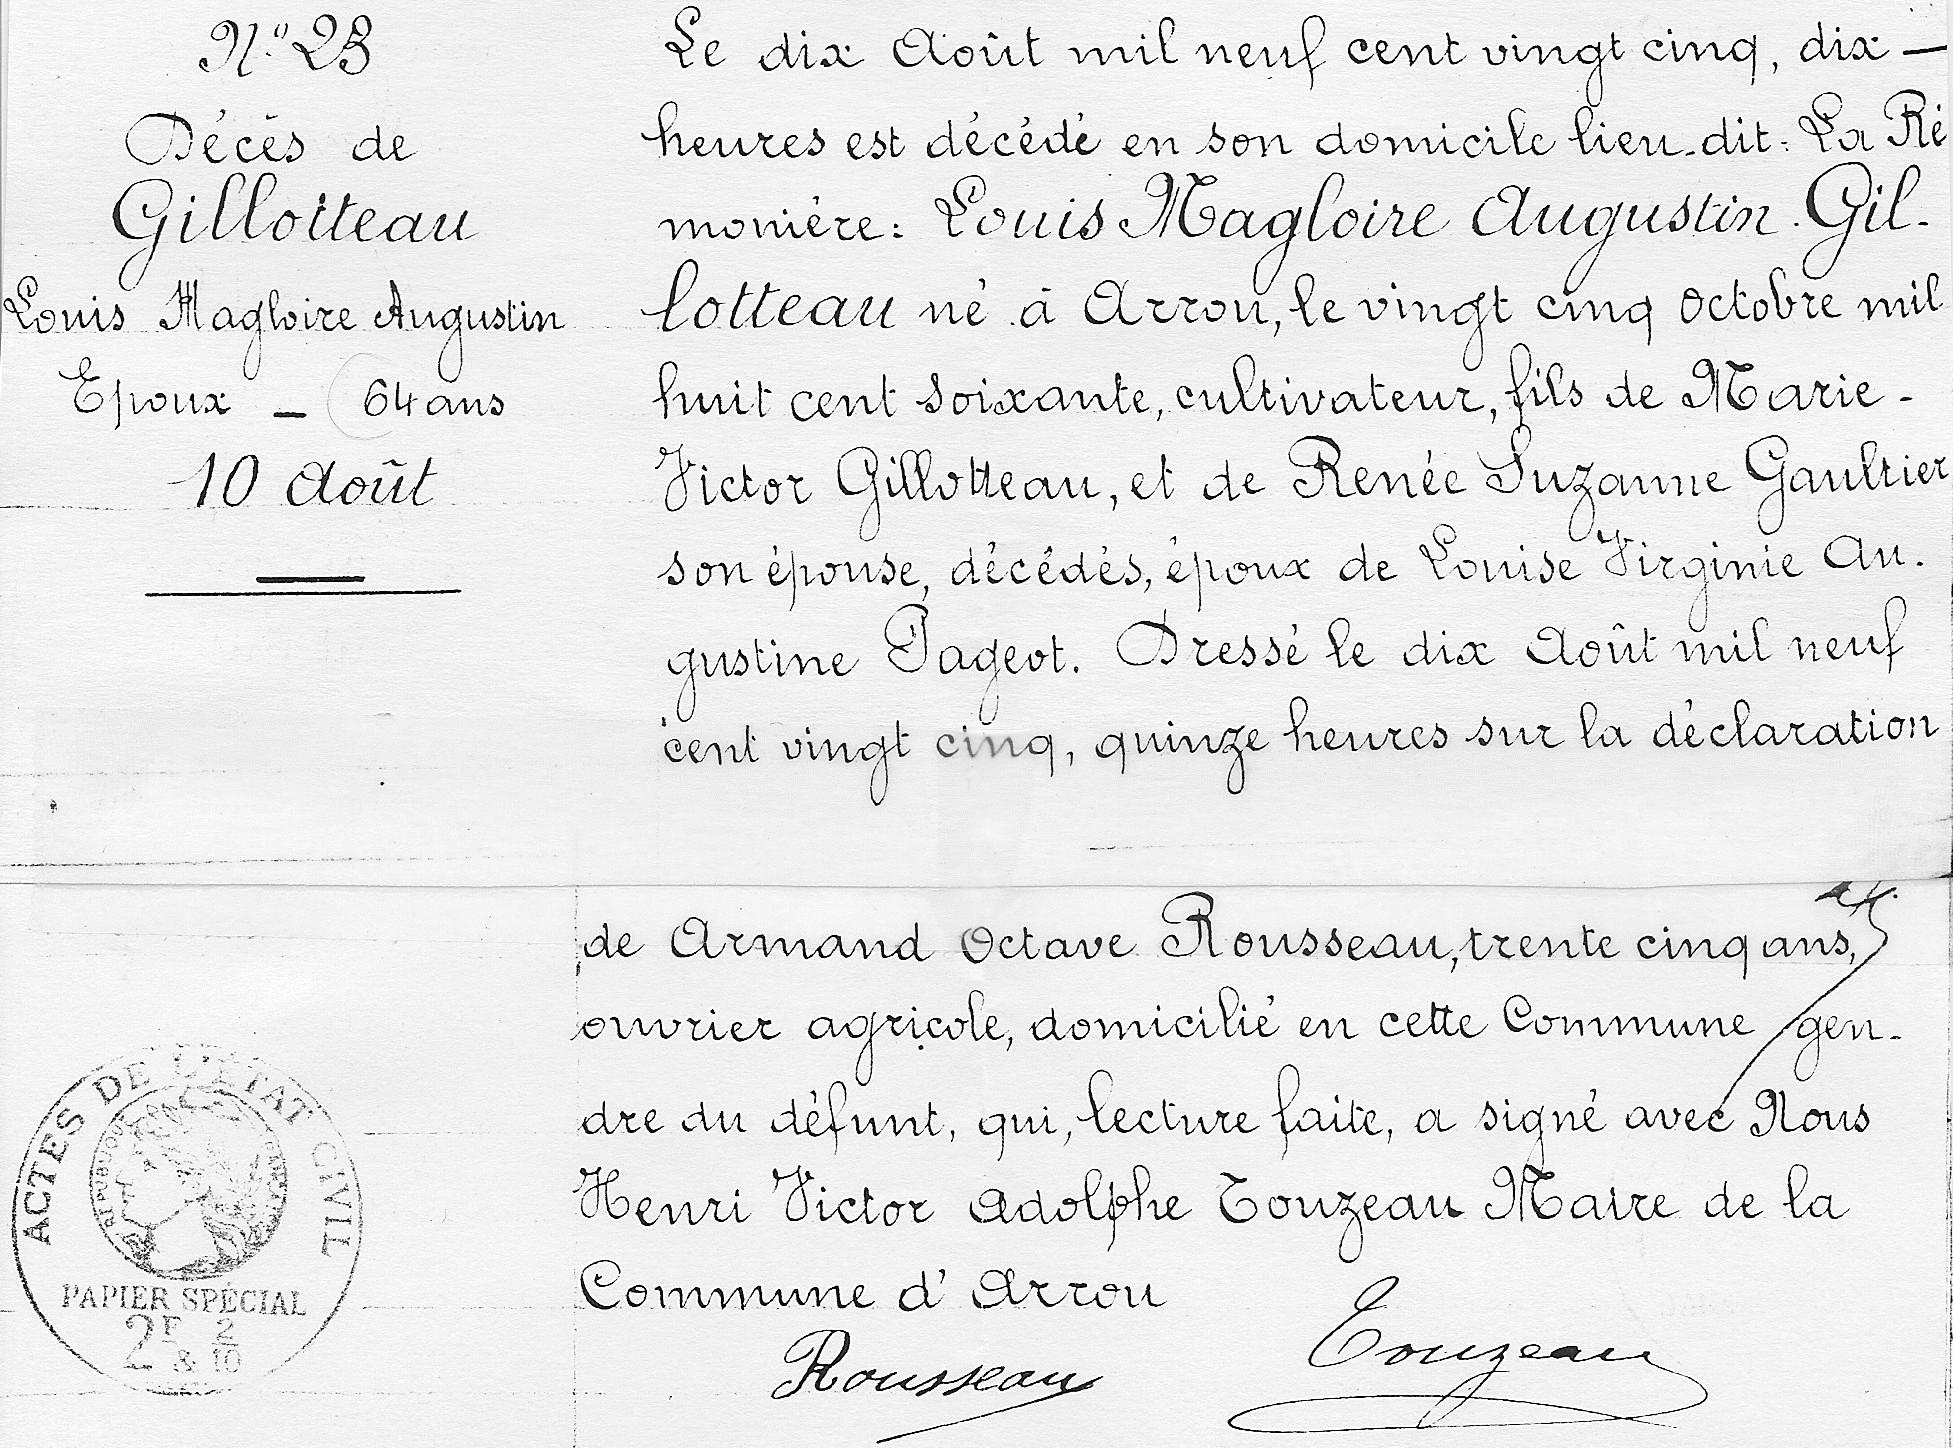 N° 23
Décès de
Gillotteau
Louis Magloire Augustin
Epoux _ 64 ans
10 Août
Le dix Août mil neuf cent vingt cinq, dix —
heures est décédé en son domicile lieu-dit: La Ré
monière: Louis Magloire Augustin Gil-
lotteau né à Arrou, le vingt cinq Octobre mil
huit cent soixante, cultivateur, fils de Marie-
Victor Gillotteau, et de Renée Suzanne Gaultier
son épouse, décédés, époux de Louise Virginie Au-
gustine Pageot. Dressé le dix Août mil neuf
cent vingt cinq, quinze heures sur la déclaration
de Armand Octave Rousseau, trente cinq ans,
ouvrier agricole, domicilié en cette Commune gen-
dre du défunt, qui, lecture faite, a signé avec Nous
Henri Victor Adolphe Touzeau Maire de la
Commune d'Arrou
Rousseau
Touzeau
ACTES DE L'ETAT CIVIL
PAPIER SPÉCIAL
2F & 2/10